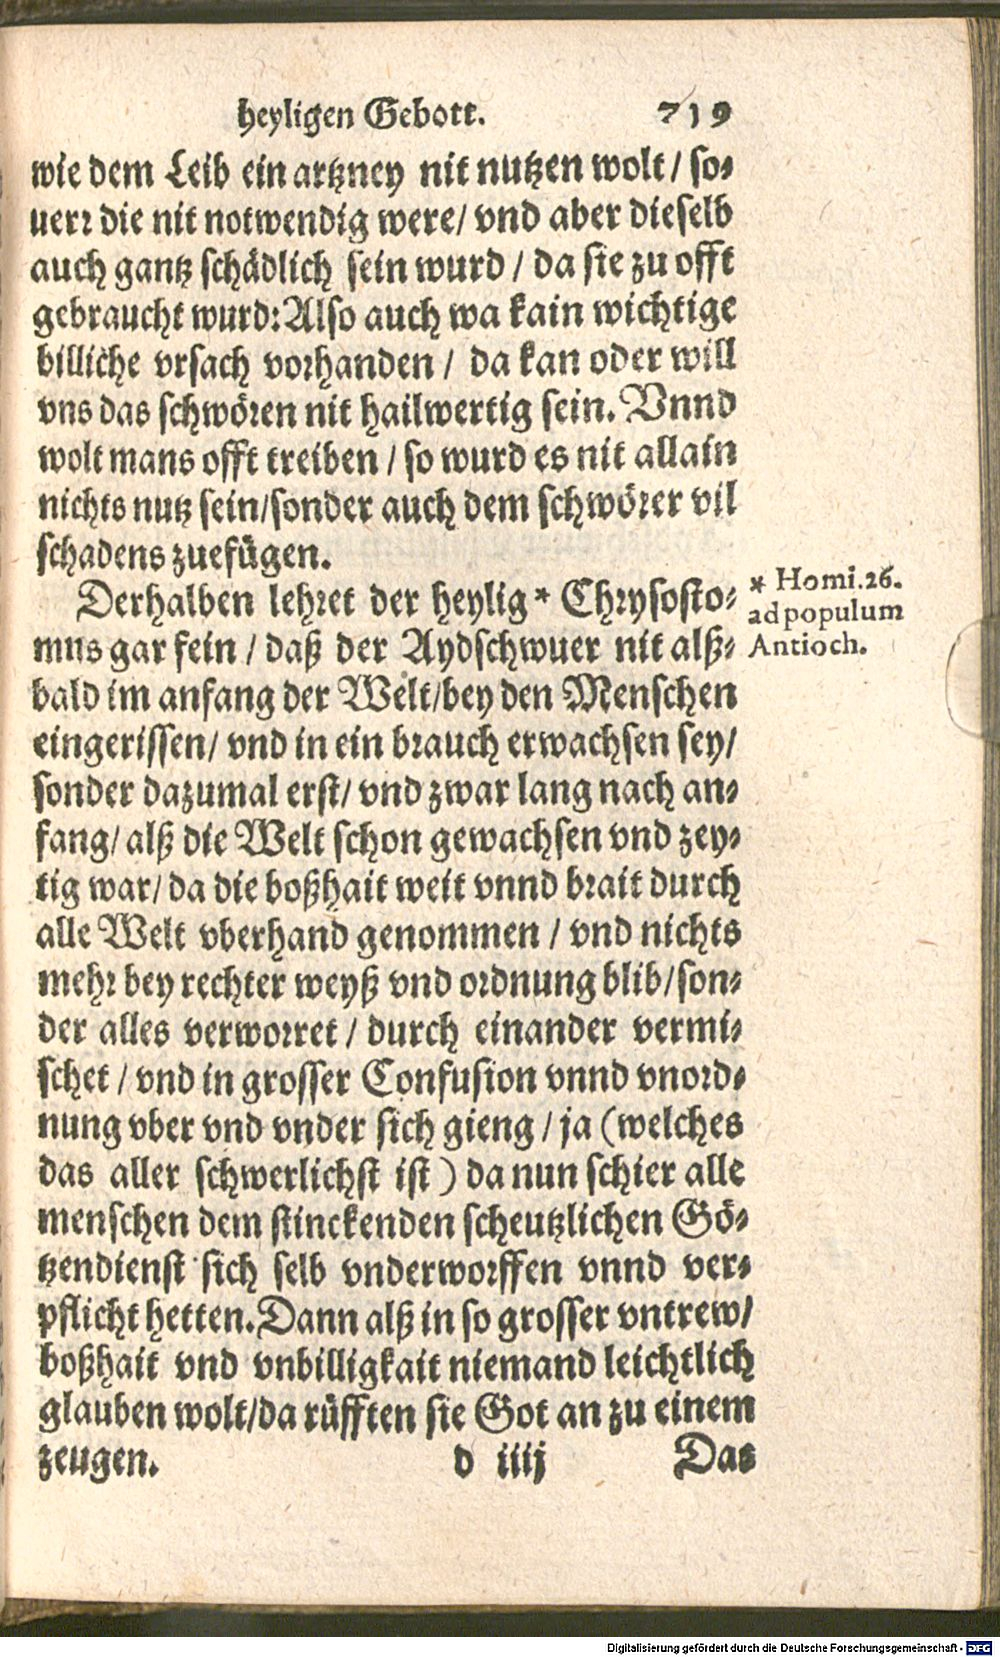 heyligen Gebott. 719
wie dem Leib ein artzney nit nutzen wolt / so⸗
uerr die nit notwendig were / vnd aber dieselb
auch gantz schädlich sein wurd / da sie zu offt
gebraucht wurd: Also auch wa kain wichtige
billiche vrsach vorhanden / da kan oder will
vns das schwören nit hailwertig sein. Vnnd
wolt mans offt treiben / so wurd es nit allain
nichts nutz sein / sonder auch dem schwörer vil
schadens zuefügen.
Derhalben lehret der heylig * Chrysosto⸗
mus gar fein / daß der Aydschwuer nit alß⸗
bald im anfang der Welt / bey den Menschen
eingerissen / vnd in ein brauch erwachsen sey /
sonder dazumal erst / vnd zwar lang nach an⸗
fang / alß die Welt schon gewachsen vnd zey⸗
tig war / da die boßhait weit vnnd brait durch
alle Welt vberhand genommen / vnd nichts
mehr bey rechter weyß vnd ordnung blib / son⸗
der alles verworret / durch einander vermi⸗
schet / vnd in grosser Confusion vnnd vnord⸗
nung vber vnd vnder sich gieng / ja (welches
das aller schwerlichst ist) da nun schier alle
menschen dem stinckenden scheutzlichen Gö⸗
tzendienst sich selb vnderworffen vnnd ver⸗
pflicht hetten. Dann alß in so grosser vntrew /
boßhait vnd vnbilligkait niemand leichtlich
glauben wolt / da rüfften sie Got an zu einem
zeugen. d iiij Das
* Homi. 26.
ad populum
Antioch.
Digitalisierung gefördert durch die Deutsche Forschungsgemeinschaft - DFG